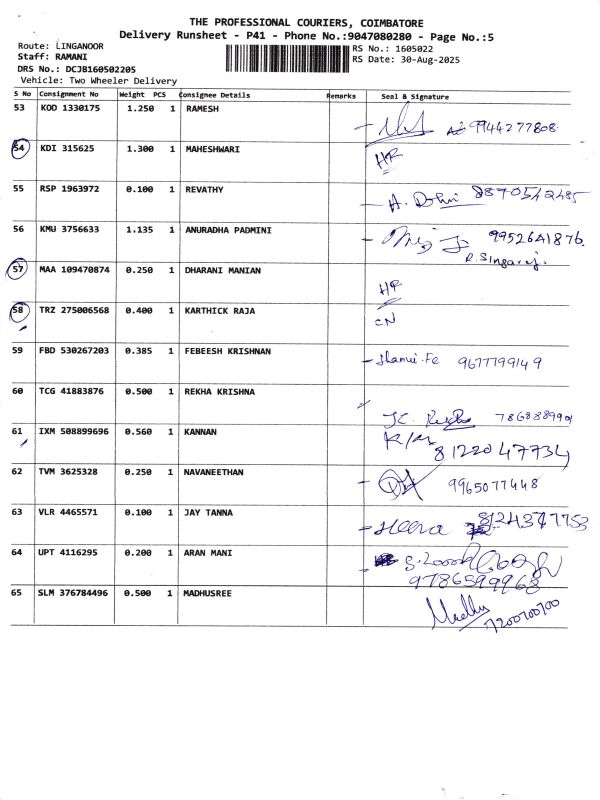 THE PROFESSIONAL COURIERS, COIMBATORE
Delivery Runsheet - P41 - Phone No.:9047080280 - Page No.:5
Route: LINGANOOR
RS No.: 1605022
Staff: RAMANI
RS Date: 30-Aug-2025
DRS No.: DCJB160502205
Vehicle: Two Wheeler Delivery
S No Consignment No Weight PCS Consignee Details Remarks Seal & Signature
53 KOD 1330175 1.250 1 RAMESH
9944277808
54 KDI 315625 1.300 1 MAHESHWARI
HR
55 RSP 1963972 0.100 1 REVATHY
56 KMU 3756633 1.135 1 ANURADHA PADMINI
9952641876
R. Singaraj.
57 MAA 109470874 0.250 1 DHARANI MANIAN
HR
58 TRZ 275006568 0.400 1 KARTHICK RAJA
CN
59 FBD 530267203 0.385 1 FEBEESH KRISHNAN
9677799149
60 TCG 41883876 0.500 1 REKHA KRISHNA
7868889901
61 IXM 508899696 0.560 1 KANNAN
8122047734
62 TVM 3625328 0.250 1 NAVANEETHAN
9965077448
63 VLR 4465571 0.100 1 JAY TANNA
Heena 8124347753
64 UPT 4116295 0.200 1 ARAN MANI
9786599968
65 SLM 376784496 0.500 1 MADHUSREE
Madhu
7200700700